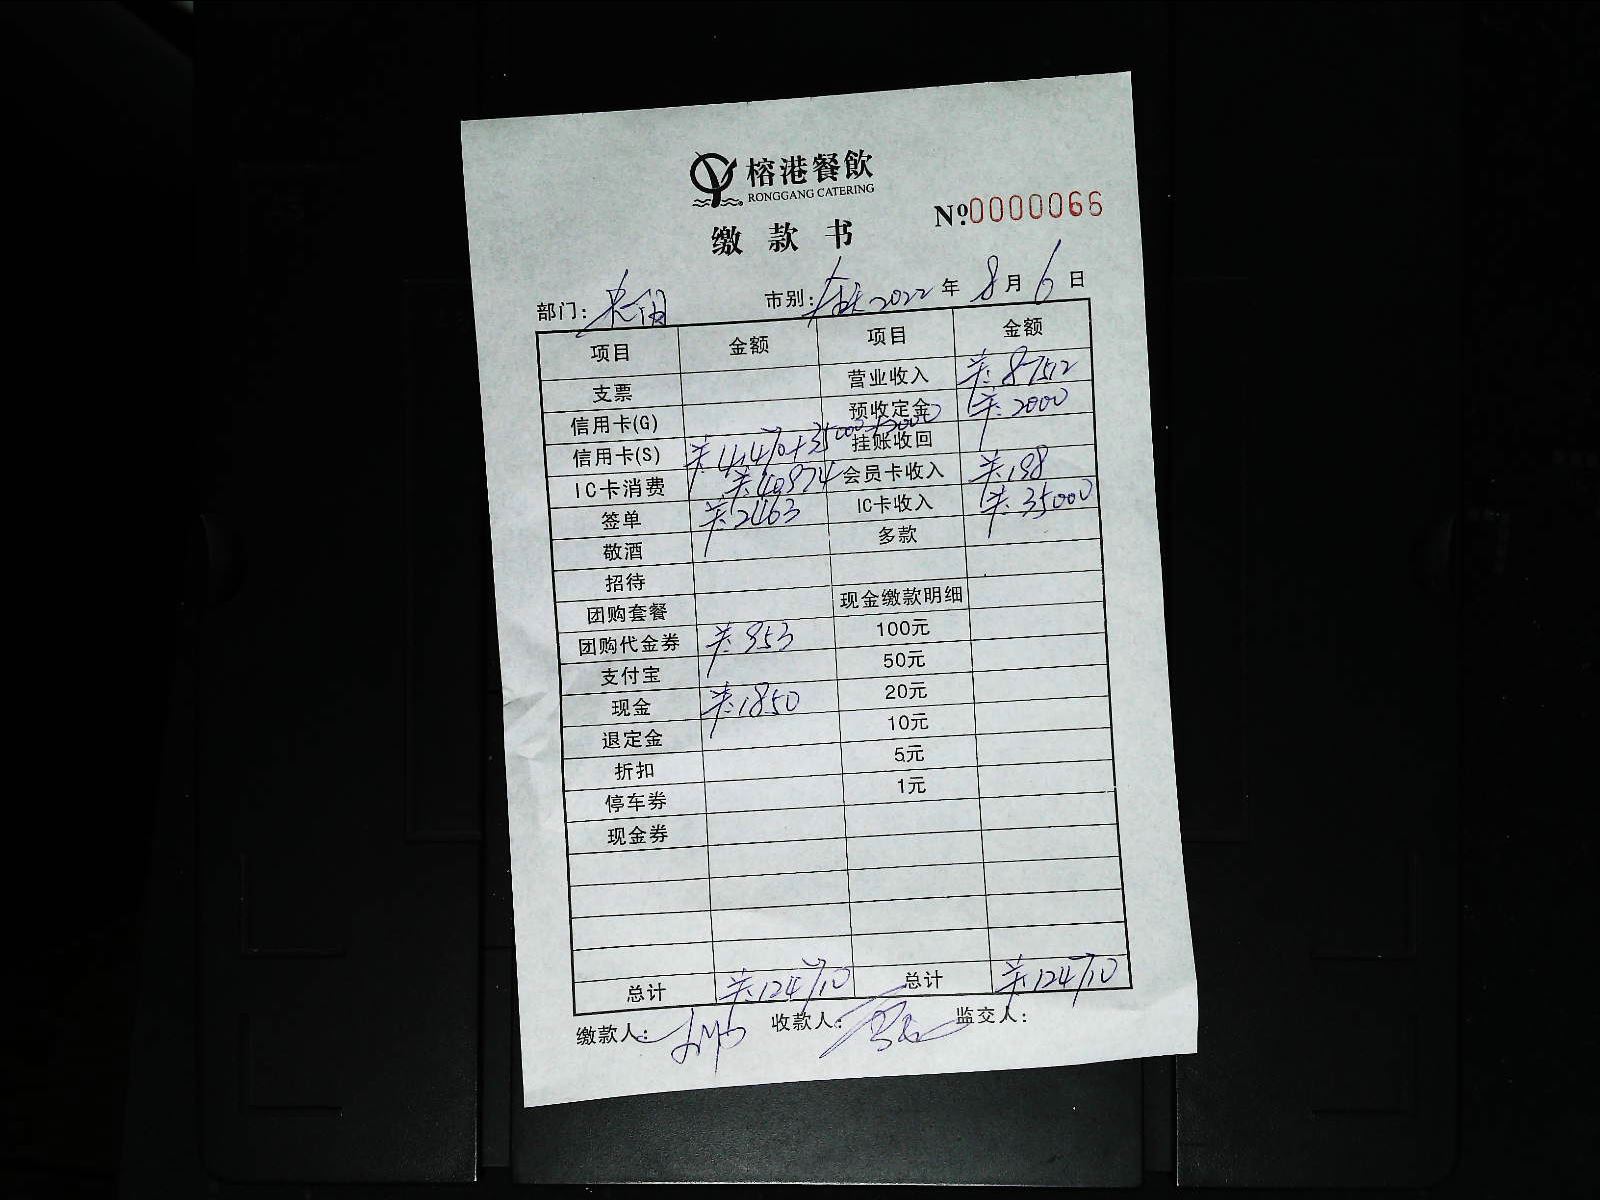 榕港餐飲
RONGGANG CATERING
№0000066
缴款书
部门: 市别: 全天 2022 年 8 月 6 日
项目 金额 项目 金额
支票 营业收入 ¥:87512
信用卡(G) 预收定金 ¥:2000
信用卡(S) ¥:41470+35000+2000 挂账收回
IC卡消费 ¥:40974 会员卡收入 ¥:198
签单 ¥:2463 IC卡收入 ¥:35000
敬酒 多款
招待
团购套餐 现金缴款明细
团购代金券 ¥:953 100元
支付宝 50元
现金 ¥:1850 20元
退定金 10元
折扣 5元
停车券 1元
现金券
总计 ¥:124710 总计 ¥:124710
缴款人: 收款人: 监交人: